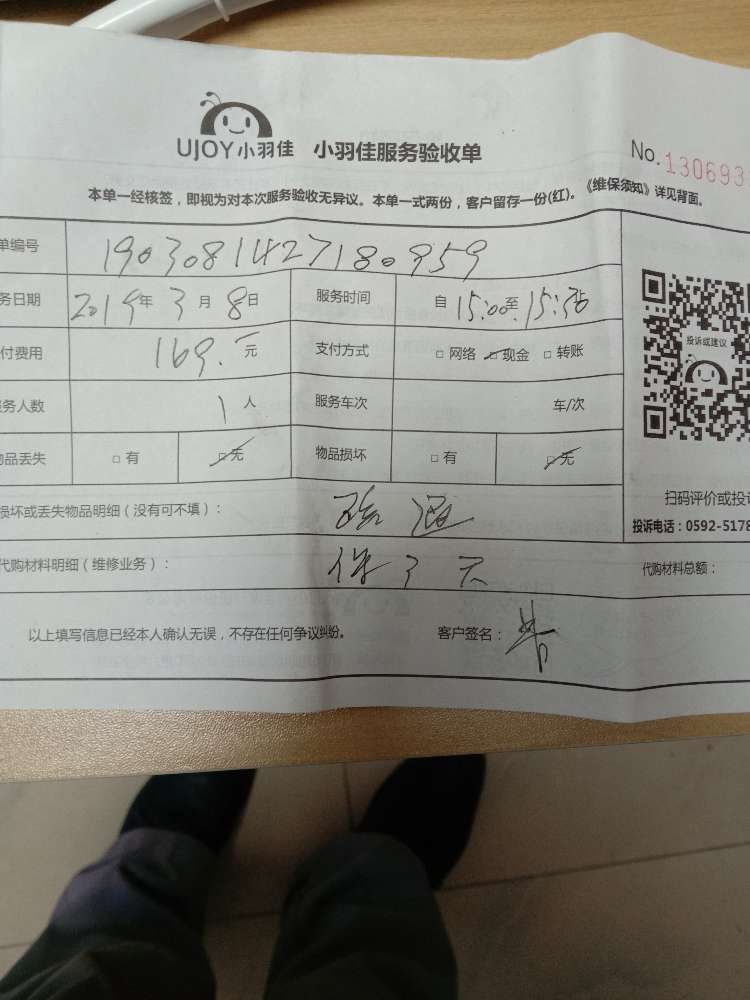 UJOY小羽佳 小羽佳服务验收单
No. 130693
本单一经核签，即视为对本次服务验收无异议。本单一式两份，客户留存一份(红)。《维保须知》详见背面。
单编号 1903081427180959
务日期 2019年3月8日 服务时间 自15:00至15:36
付费用 169.元 支付方式 □网络 □现金 □转账
务人数 1人 服务车次 车/次
品丢失 □有 □无 物品损坏 □有 □无
投诉或建议
扫码评价或投诉
投诉电话：0592-5178
损坏或丢失物品明细（没有可不填）： 疏通
代购材料明细（维修业务）： 保3天 代购材料总额：
以上填写信息已经本人确认无误，不存在任何争议纠纷。 客户签名：